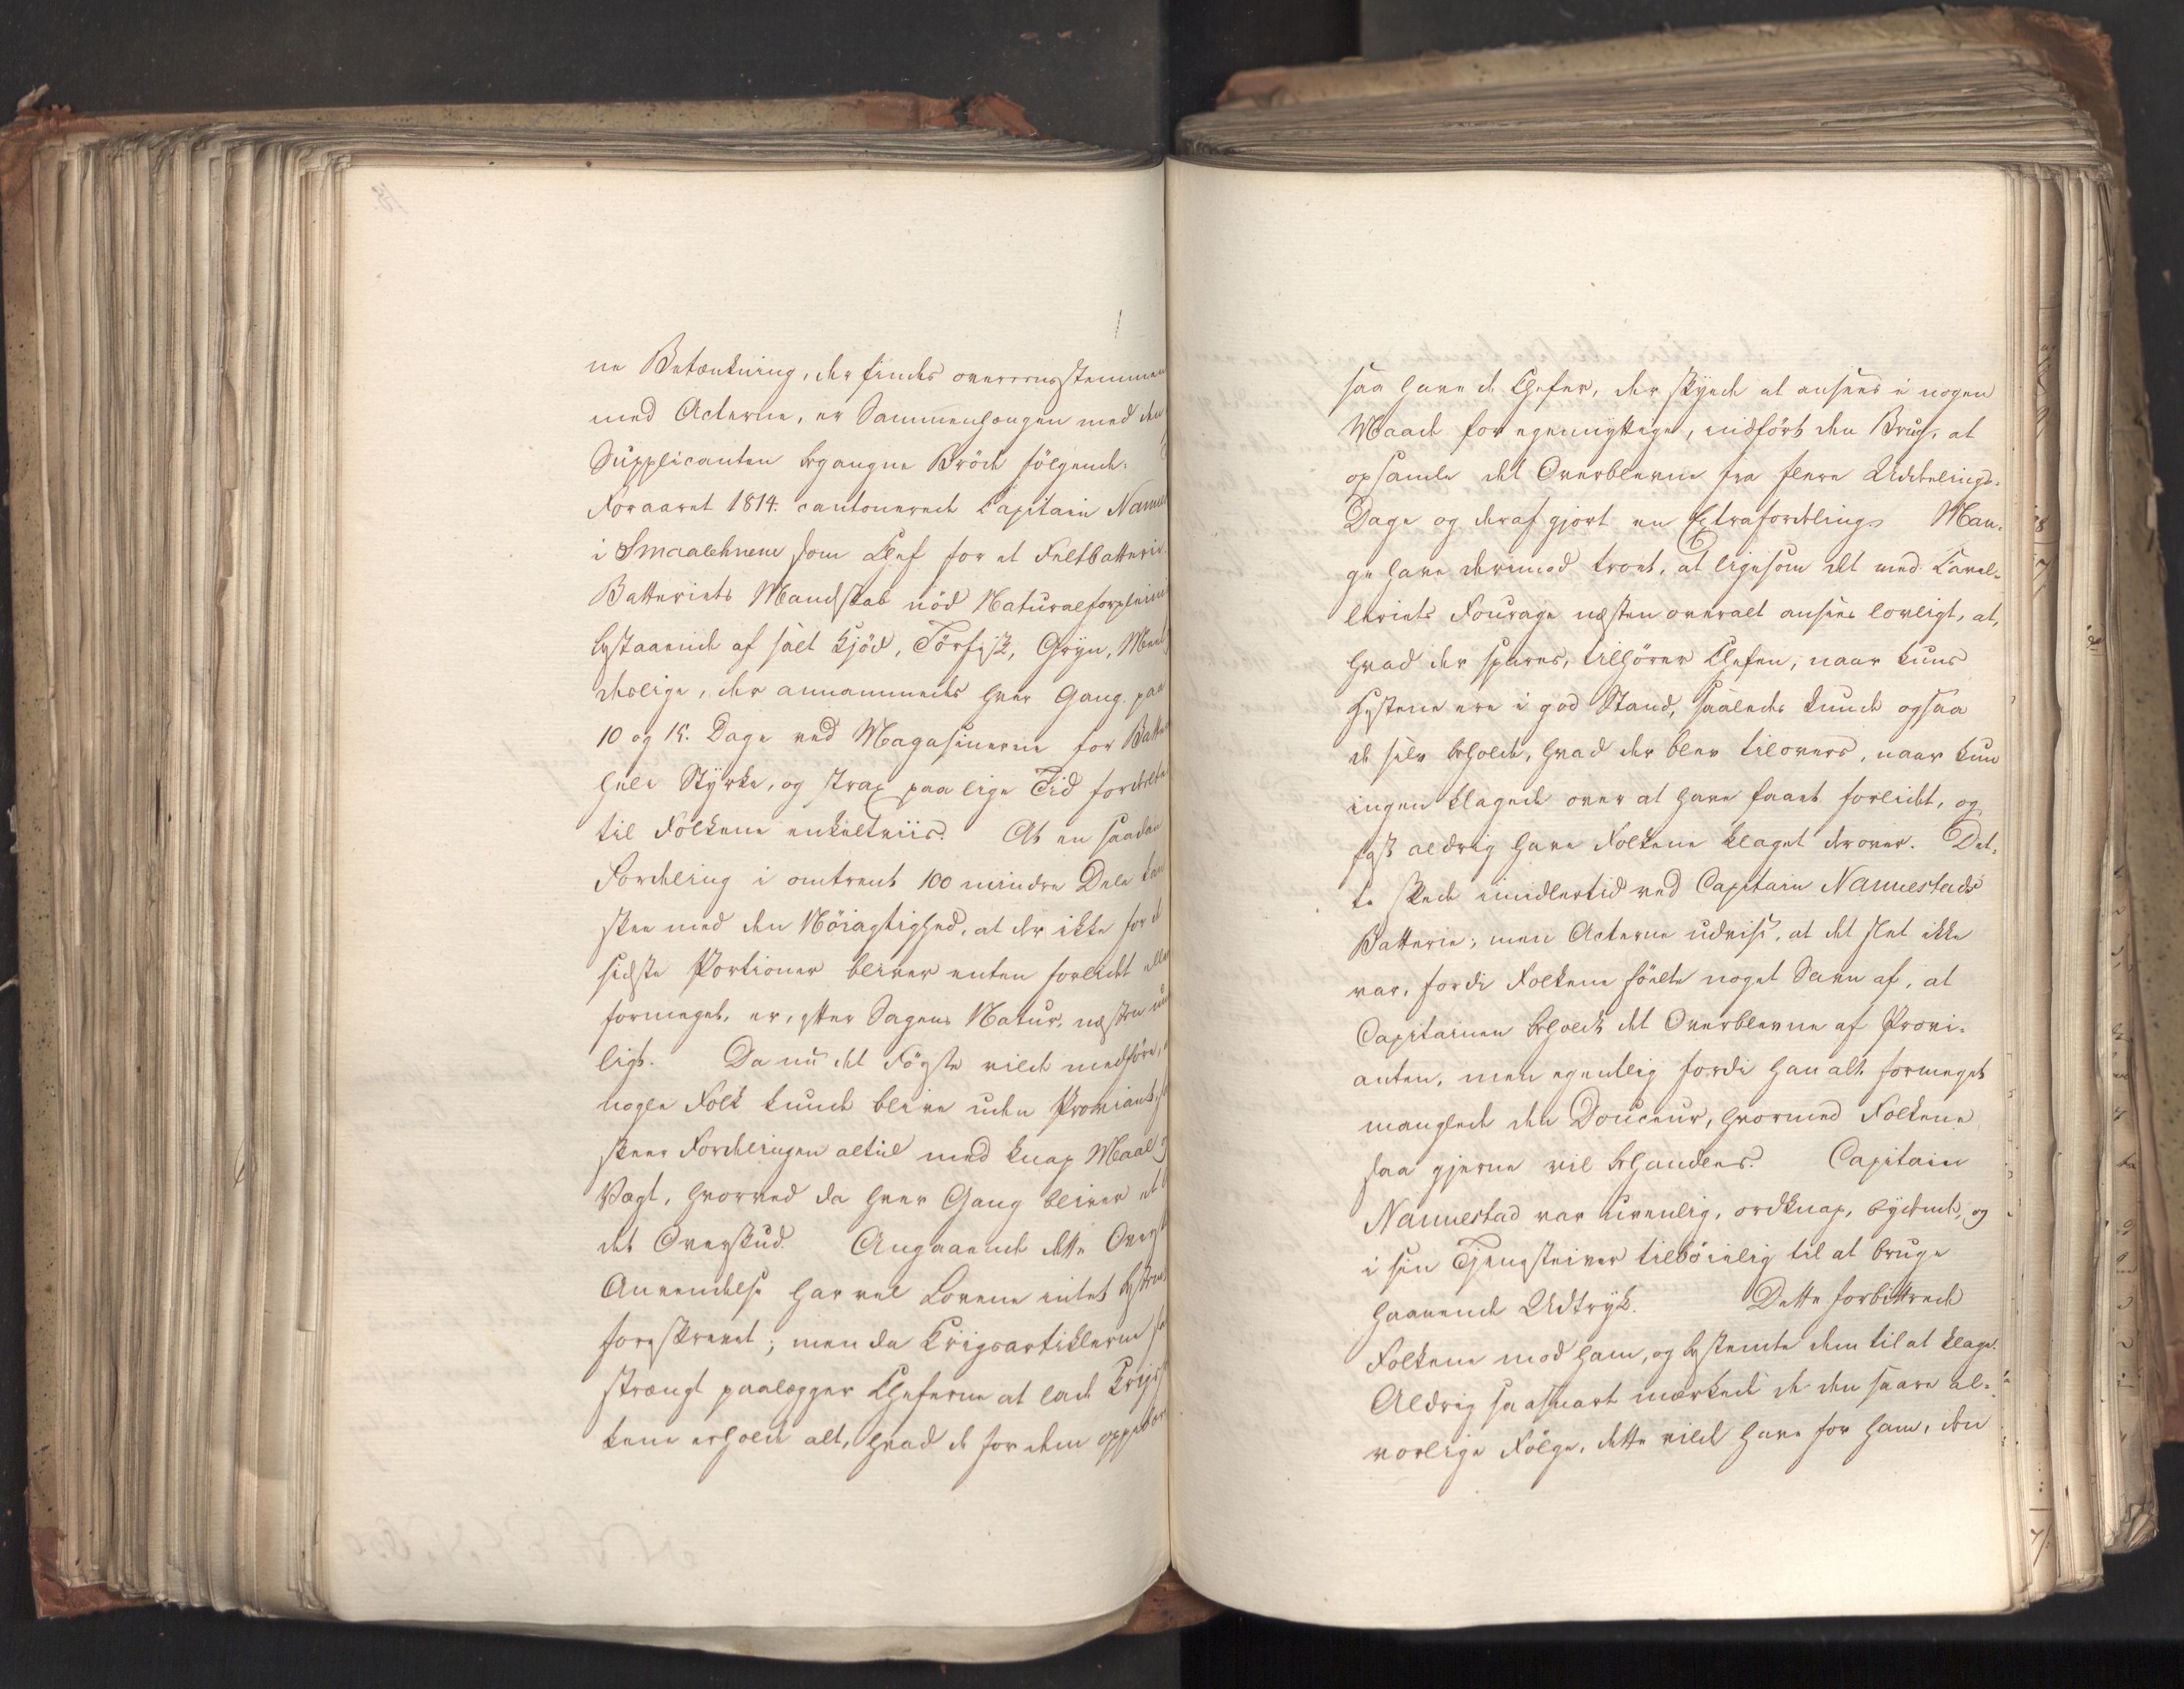 ne Betænkning, der findes overeensstemmen
med Acterne, er Sammenhængen med den
Supplicanten begangne Bröde fölgende:
Foraaret 1814. cantonerede Capitain Nannes
i Smaalehnene som Chef for et Feltbatterie.
Batteriets Mandskab nöd Naturalforpleini
bestaaende af salt Kjöd, Törfisk, Gryn, Meel
desligе, der annammedes hver Gang paa
10 og 15. Dage ved Magasinerne for Batte
hele Styrke, og strax paa lige Tid fordeeltes
til Folkene enkeltviis. At en saadan
Fordeling i omtrent 100 mindre Dele kan
skee med den Nöiagtighed, at der ikke for de
sidste Portioner bliver enten forlidt elle
formeget, er, efter Sagens Natur, næsten um
ligt. Da nu det Förste vilde medföre, a
nogle Folk kunde blive uden Proviant, s
skeer Fordelingen altid med knap Maal og
Vægt, hvorved da hver Gang bliver et
det Overskud. Angaaende dette Overs
Anvendelse har vel Lovene intet bestem
foreskrevet; men da Krigsartiklerne s
strængt paalægger Cheferne at lade Krigs
kene erholde alt, hvad de for dem oppebær
saa have de Chefer, der skyede at ansees i nogen
Maade for egennyttige, indfört den Brug, at
opsamle det Overblevne fra flere Uddelings-
Dage og deraf gjort en Extrafordeling. Man-
ge have derimod troet, at ligesom det med Caval-
leriets Fourage næsten overalt ansees lovligt, at,
hvad der spares, tilhörer Chefen, naar kuns
Hestene ere i god Stand, saaledes kunde ogsaa
de selv beholde, hvad der blev tilovers, naar kun
ingen klagede over at have faaet forlidt, og
fast aldrig have Folkene klaget derover. Det-
te skede imidlertid ved Capitain Nannestads
Batterie; men Acterne udvise, at det slet ikke
var, fordi Folkene fölte noget Savn af, at
Capitainen beholdt det Overblevne af Provi-
anten, men egentlig fordi han alt formeget
manglede den Douceur, hvormed Folkene
saa gjerne vil behandles. Capitain
Nannestad var uvenlig, ordknap, bydende, og
i sin Tjenesteiver tilböielig til at bruge
haanende Udtryk. Dette forbittrede
Folkene mod ham, og bestemte dem til at klage.
Aldrig saasnart mærkede de den saare al-
vorlige Fölge, dette vilde have for ham, den